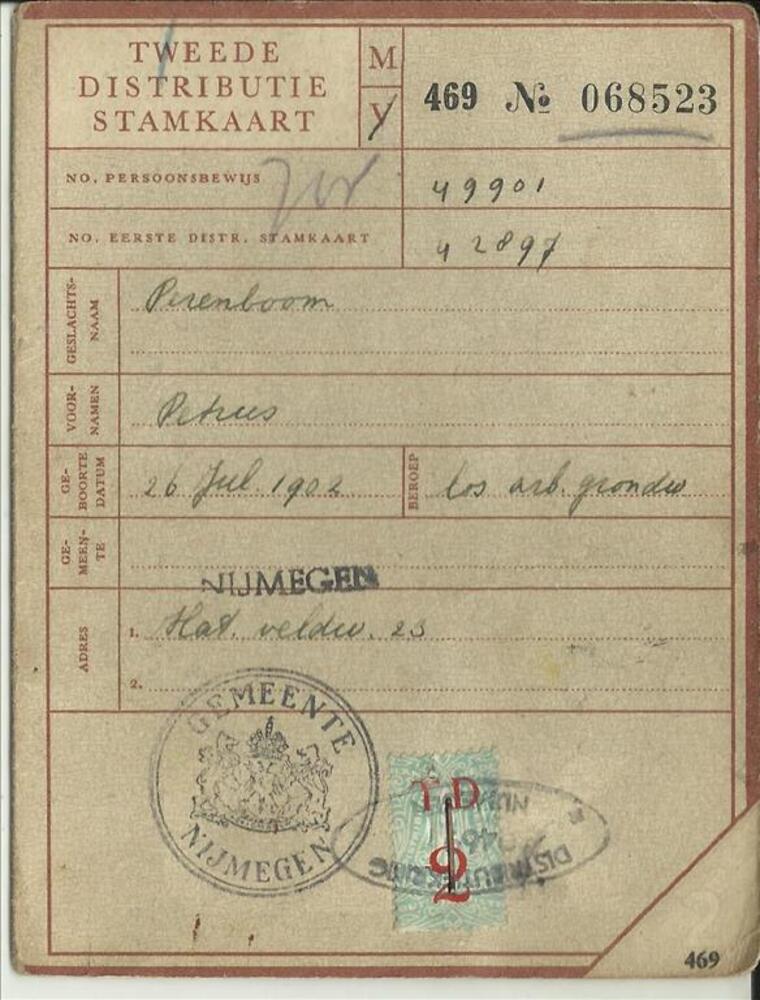 TWEEDE
DISTRIBUTIE
STAMKAART
M
V
469 No 068523
NO. PERSOONSBEWIJS
49901
NO. EERSTE DISTR. STAMKAART
42897
GESLACHTS-
NAAM
Perenboom
VOOR-
NAMEN
Petrus
GE-
BOORTE
DATUM
26 Jul. 1902
BEROEP
los arb. grondw
GE-
MEEN-
TE
NIJMEGEN
ADRES
1. Hat. veldw. 23
2.
GEMEENTE
NIJMEGEN
TD
2
469